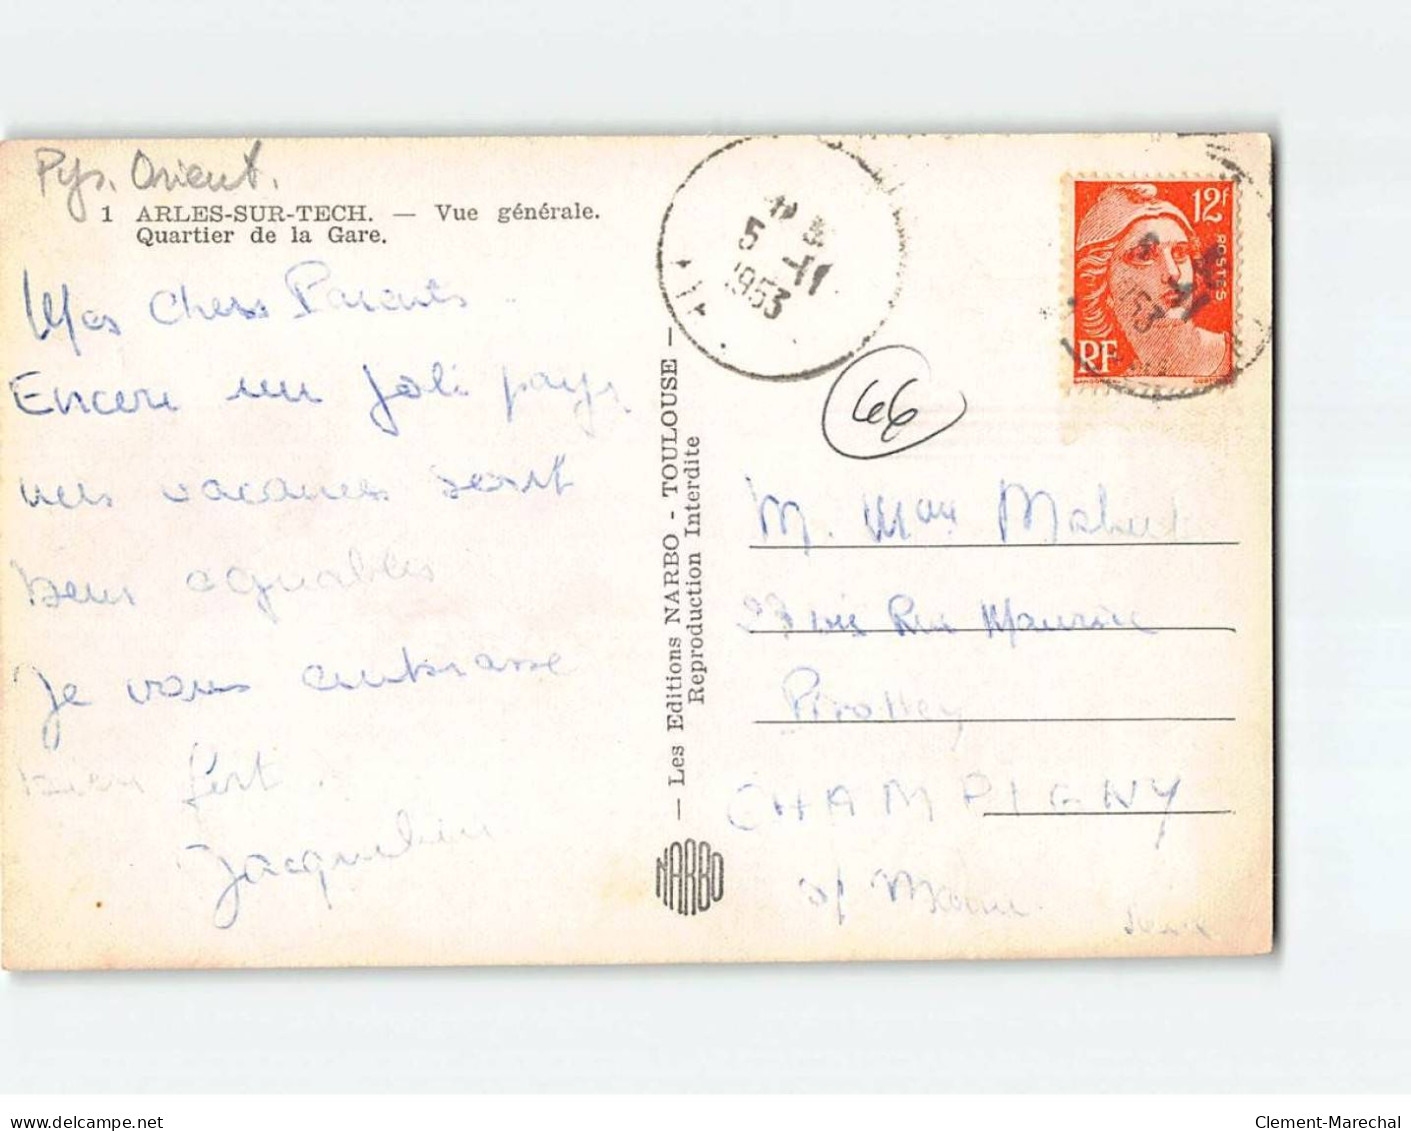 Pys. Orient.
1 ARLES-SUR-TECH. — Vue générale.
Quartier de la Gare.
Mes Chers Parents
Encore un joli pays
nos vacances sont
bien agréables
Je vous embrasse
bien fort.
Jacqueline
— Les Editions NARBO - TOULOUSE —
Reproduction Interdite
NARBO
5 - 11
1953
66
12F
POSTES
RF
M. Mme Mahut
23 bis Rue Maurice
CHAMPIGNY
s/ Marne
Seine
www.delcampe.net
Clement-Marechal